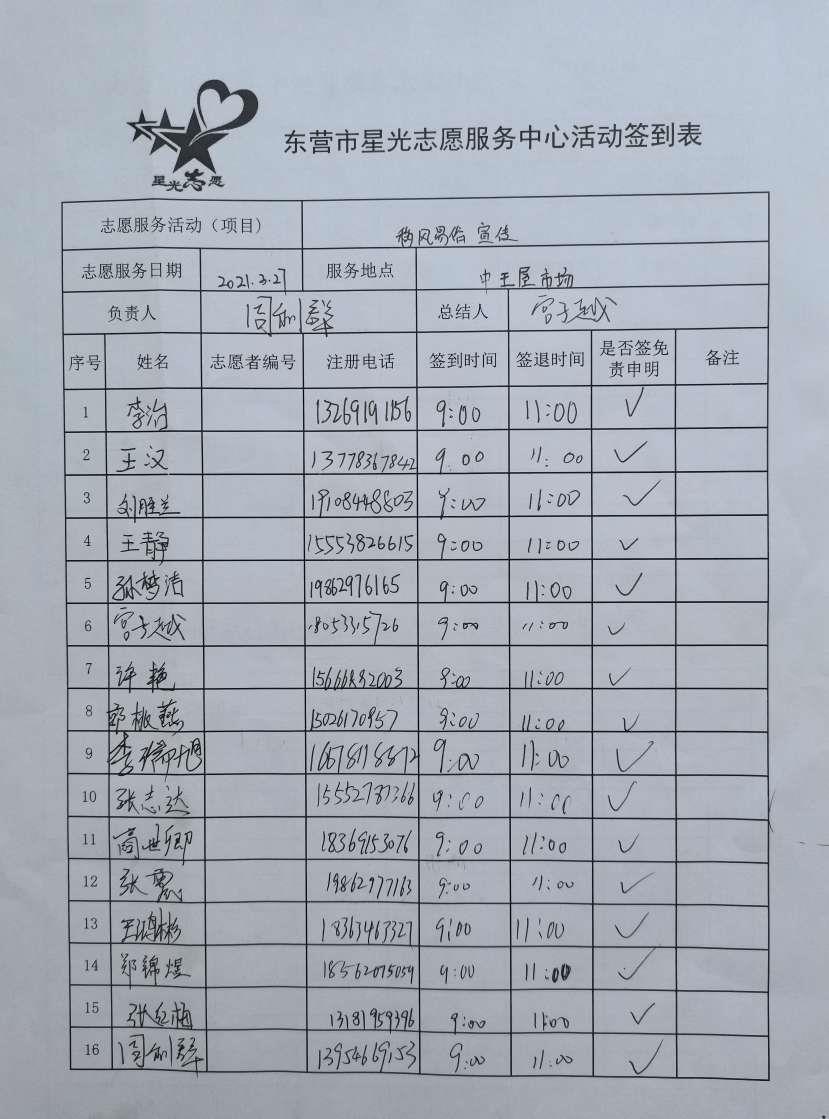 星光志愿
东营市星光志愿服务中心活动签到表
志愿服务活动（项目) 移风易俗 宣传
志愿服务日期 2021.3.27 服务地点 中王屋市场
负责人 周利群 总结人 宫子越
序号 姓名 志愿者编号 注册电话 签到时间 签退时间 是否签免责申明 备注
1 李治 13269191156 9:00 11:00 ✓
2 王汉 13778367842 9:00 11:00 ✓
3 刘胜兰 19108448803 9:00 11:00 ✓
4 王静 15553826615 9:00 11:00 ✓
5 孙梦洁 19862976165 9:00 11:00 ✓
6 宫子越 18053315726 9:00 11:00 ✓
7 许艳 9:00 11:00 ✓
8 15026170957 9:00 11:00 ✓
9 9:00 11:00 ✓
10 张志达 15552787366 9:00 11:00 ✓
11 商世卿 18369153076 9:00 11:00 ✓
12 张震 19862977163 9:00 11:00 ✓
13 18363463327 9:00 11:00 ✓
14 郑锦煜 18562075059 9:00 11:00 ✓
15 张红梅 13181959396 9:00 11:00 ✓
16 周利群 13954669153 9:00 11:00 ✓